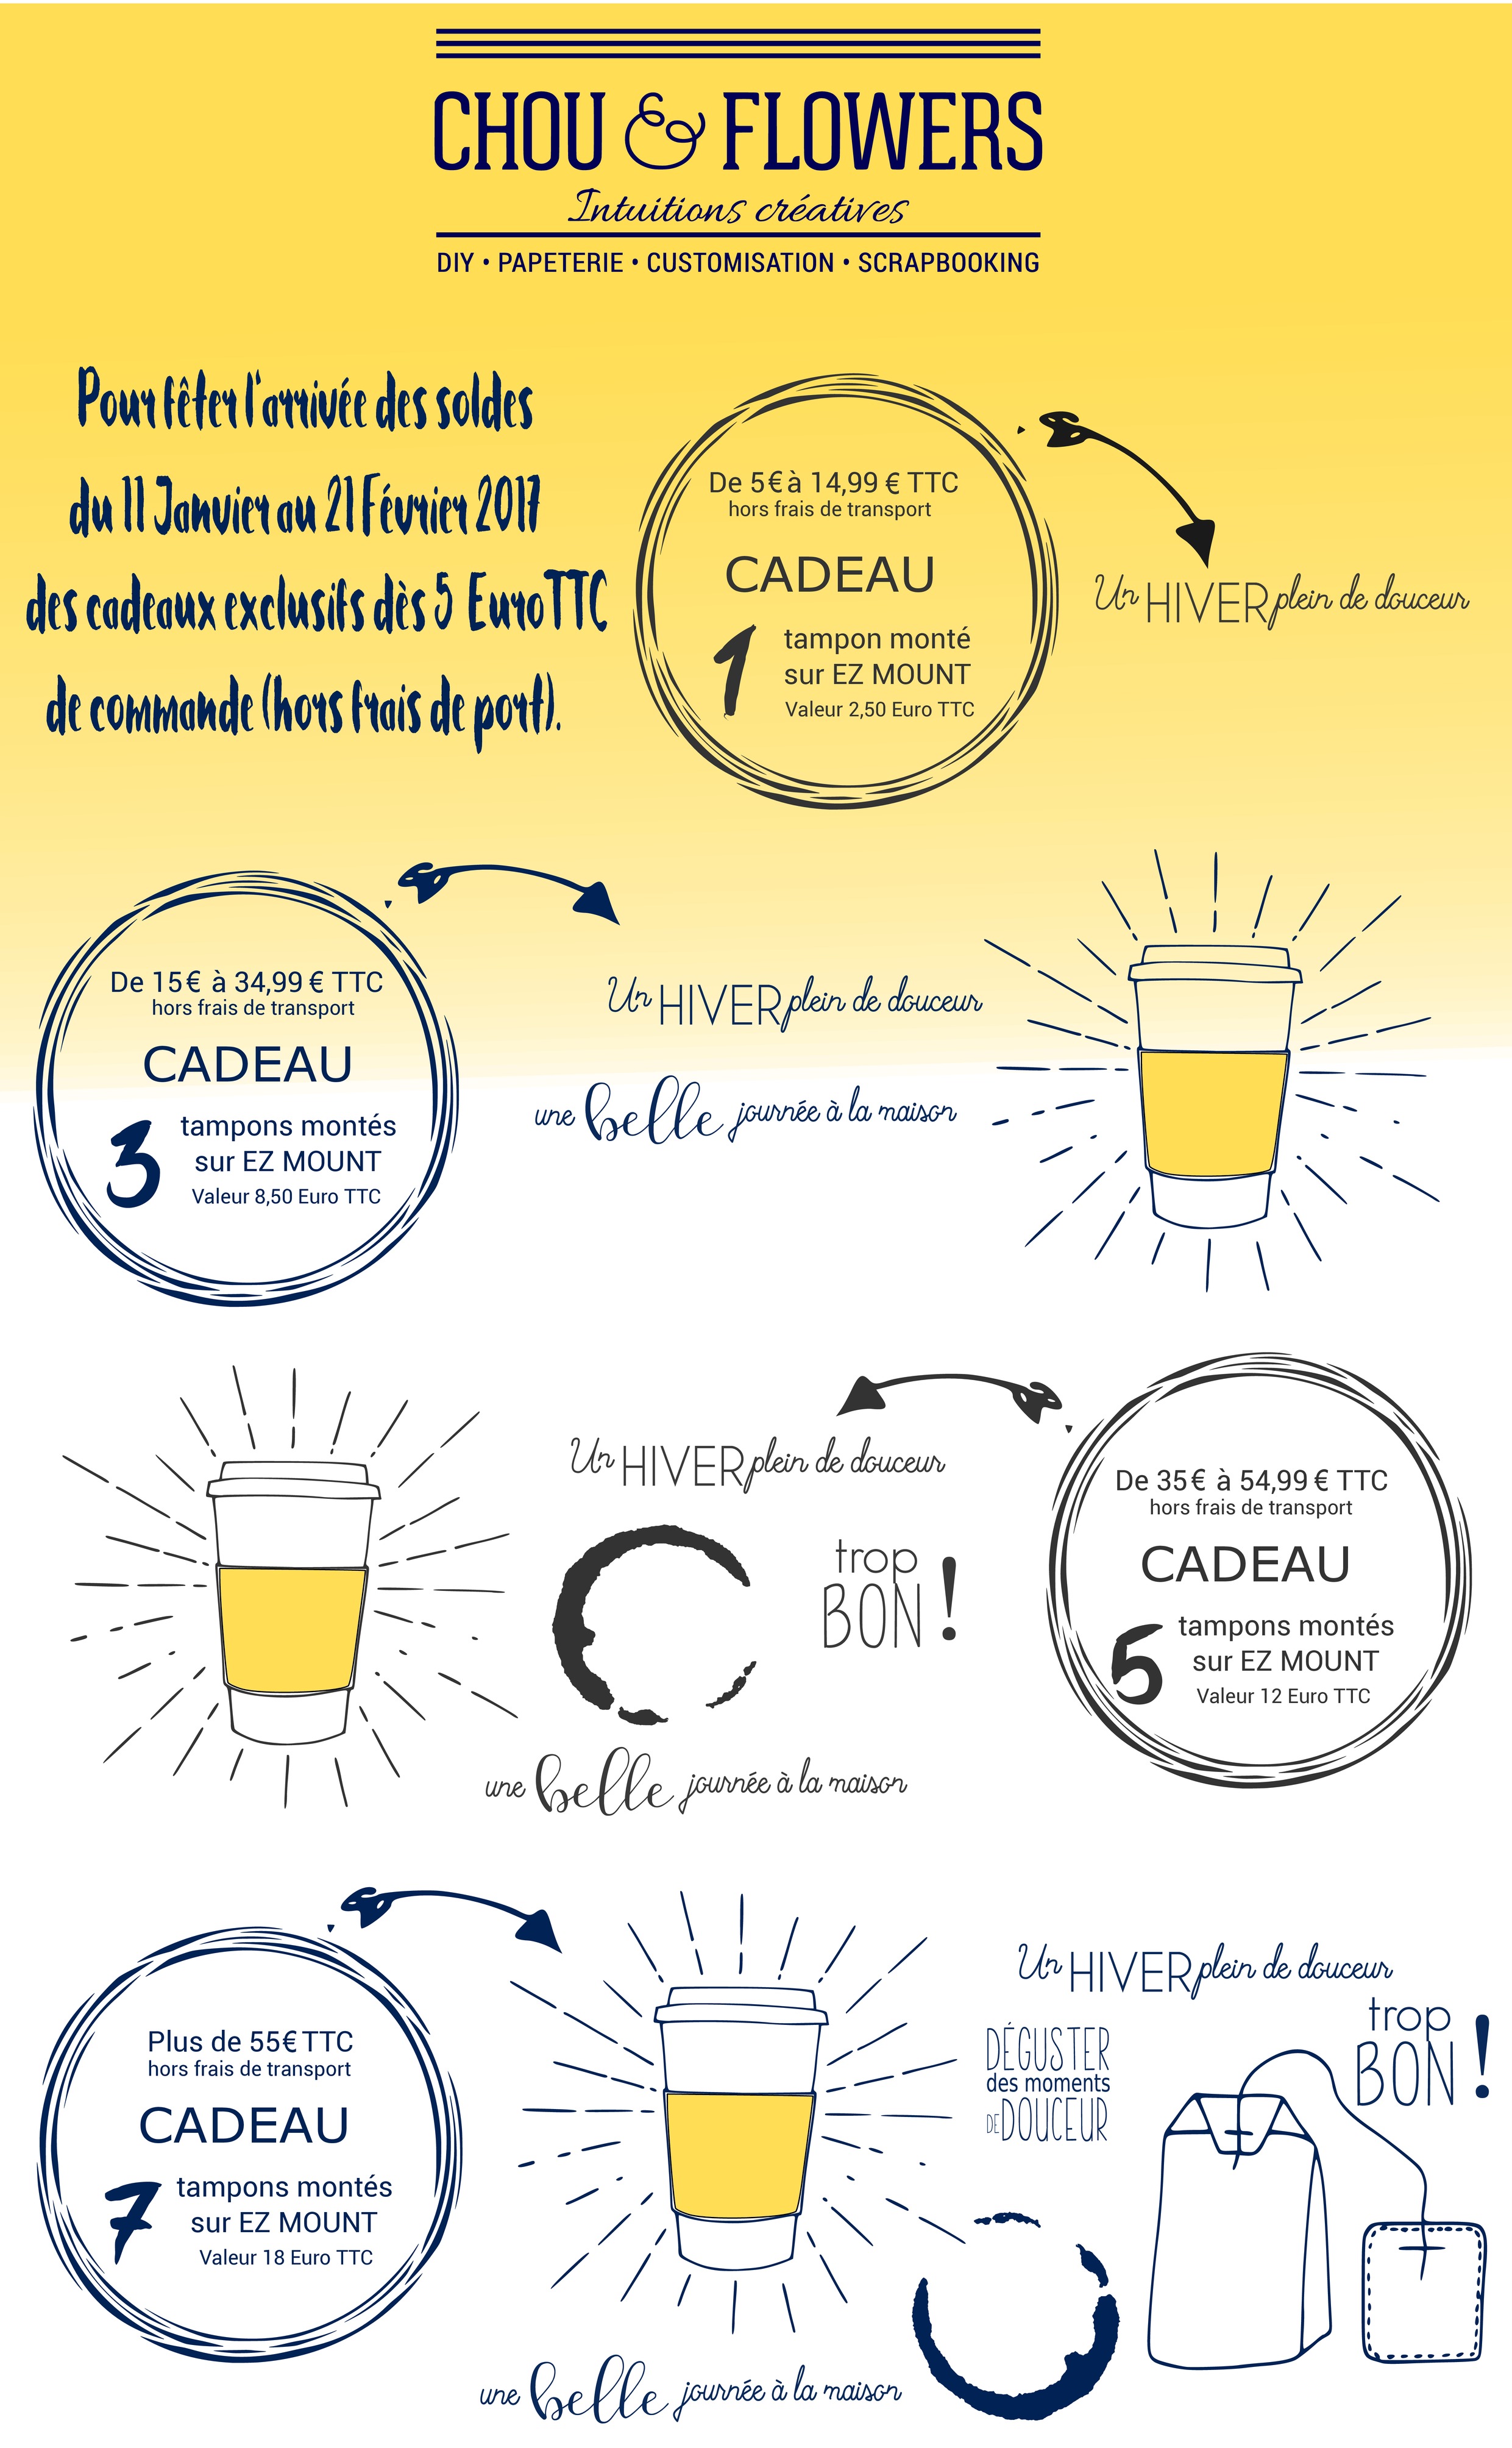 CHOU & FLOWERS
Intuitions créatives
DIY • PAPETERIE • CUSTOMISATION • SCRAPBOOKING
Pour fêter l'arrivée des soldes
du 11 Janvier au 21 Février 2017
des cadeaux exclusifs dès 5 Euro TTC
de commande (hors frais de port).
De 5€ à 14,99 € TTC
hors frais de transport
CADEAU
1 tampon monté
sur EZ MOUNT
Valeur 2,50 Euro TTC
Un HIVER plein de douceur
De 15€ à 34,99 € TTC
hors frais de transport
CADEAU
3 tampons montés
sur EZ MOUNT
Valeur 8,50 Euro TTC
Un HIVER plein de douceur
une belle journée à la maison
Un HIVER plein de douceur
trop
BON !
une belle journée à la maison
De 35€ à 54,99 € TTC
hors frais de transport
CADEAU
5 tampons montés
sur EZ MOUNT
Valeur 12 Euro TTC
Plus de 55€ TTC
hors frais de transport
CADEAU
7 tampons montés
sur EZ MOUNT
Valeur 18 Euro TTC
Un HIVER plein de douceur
trop
BON !
DÉGUSTER
des moments
DE DOUCEUR
une belle journée à la maison